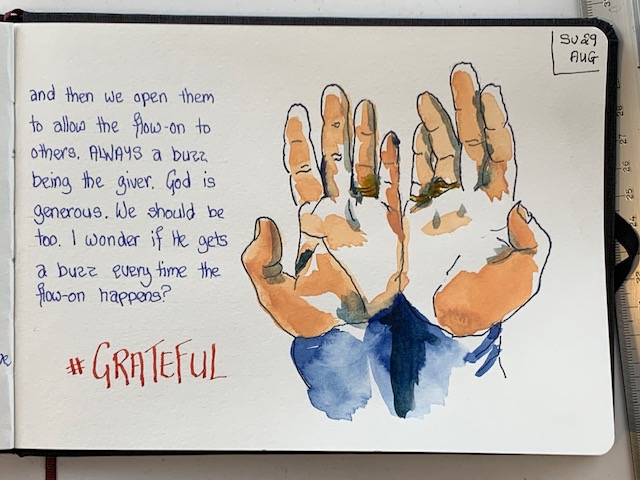 and then we open them
to allow the flow-on to
others. ALWAYS a buzz
being the giver. God is
generous. We should be
too. I wonder if He gets
a buzz every time the
flow-on happens?
#GRATEFUL
SU 29
AUG